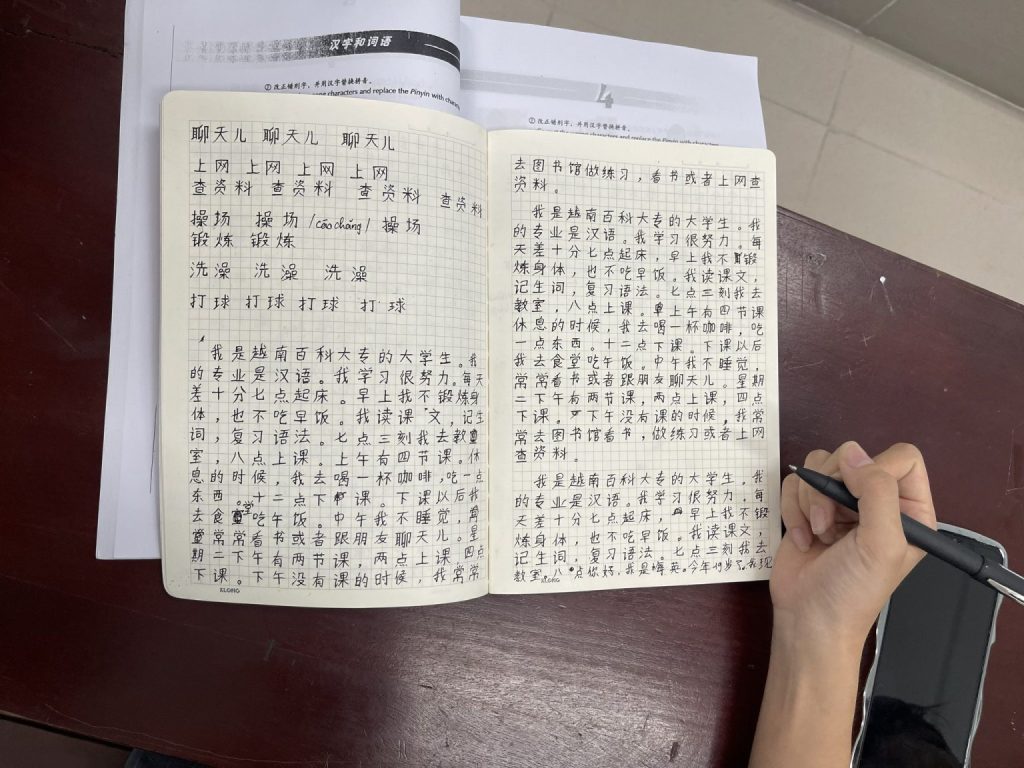 汉字和词语
② 改正错别字，并用汉字替换拼音。
characters and replace the Pinyin with
聊天儿 聊天儿 聊天儿
上网 上网 上网 上网
查资料 查资料 查资料 查资料
操场 操场 /cāochǎng/ 操场
锻炼 锻炼
洗澡 洗澡 洗澡
打球 打球 打球 打球
我是越南百科大专的大学生。我
的专业是汉语。我学习很努力。每天
差十分七点起床。早上我不锻炼身
体，也不吃早饭。我读课文，记生
词，复习语法。七点三刻我去教
室，八点上课。上午有四节课。休
息的时候，我去喝一杯咖啡，吃一点
东西。十二点下课。下课以后我
去食堂吃午饭。中午我不睡觉，
常常看书或者跟朋友聊天儿。星
期二下午有两节课，两点上课，四点
下课。下午没有课的时候，我常常
KLONG
4
② 改正错别字，并用汉字替换拼音。
characters and replace the Pinyin with characters
去图书馆做练习，看书或者上网查
资料。
我是越南百科大专的大学生。我
的专业是汉语。我学习很努力。每
天差十分七点起床，早上我不锻
炼身体，也不吃早饭。我读课文，
记生词，复习语法。七点三刻我去
教室，八点上课。上午有四节课
休息的时候，我去喝一杯咖啡，吃
一点东西。十二点下课。下课以后
我去食堂吃午饭。中午我不睡觉，
常常看书或者跟朋友聊天儿。星期
二下午有两节课，两点上课，四点
下课。下午没有课的时候，我常
常去图书馆看书，做练习或者上网
查资料。
我是越南百科大专的大学生，我
的专业是汉语。我学习很努力，每
天差十分七点起床，早上我不锻
炼身体，也不吃早饭。我读课文，
记生词，复习语法。七点三刻我去
教室，八点你好，我是 英。今年19岁了。我
KLONG